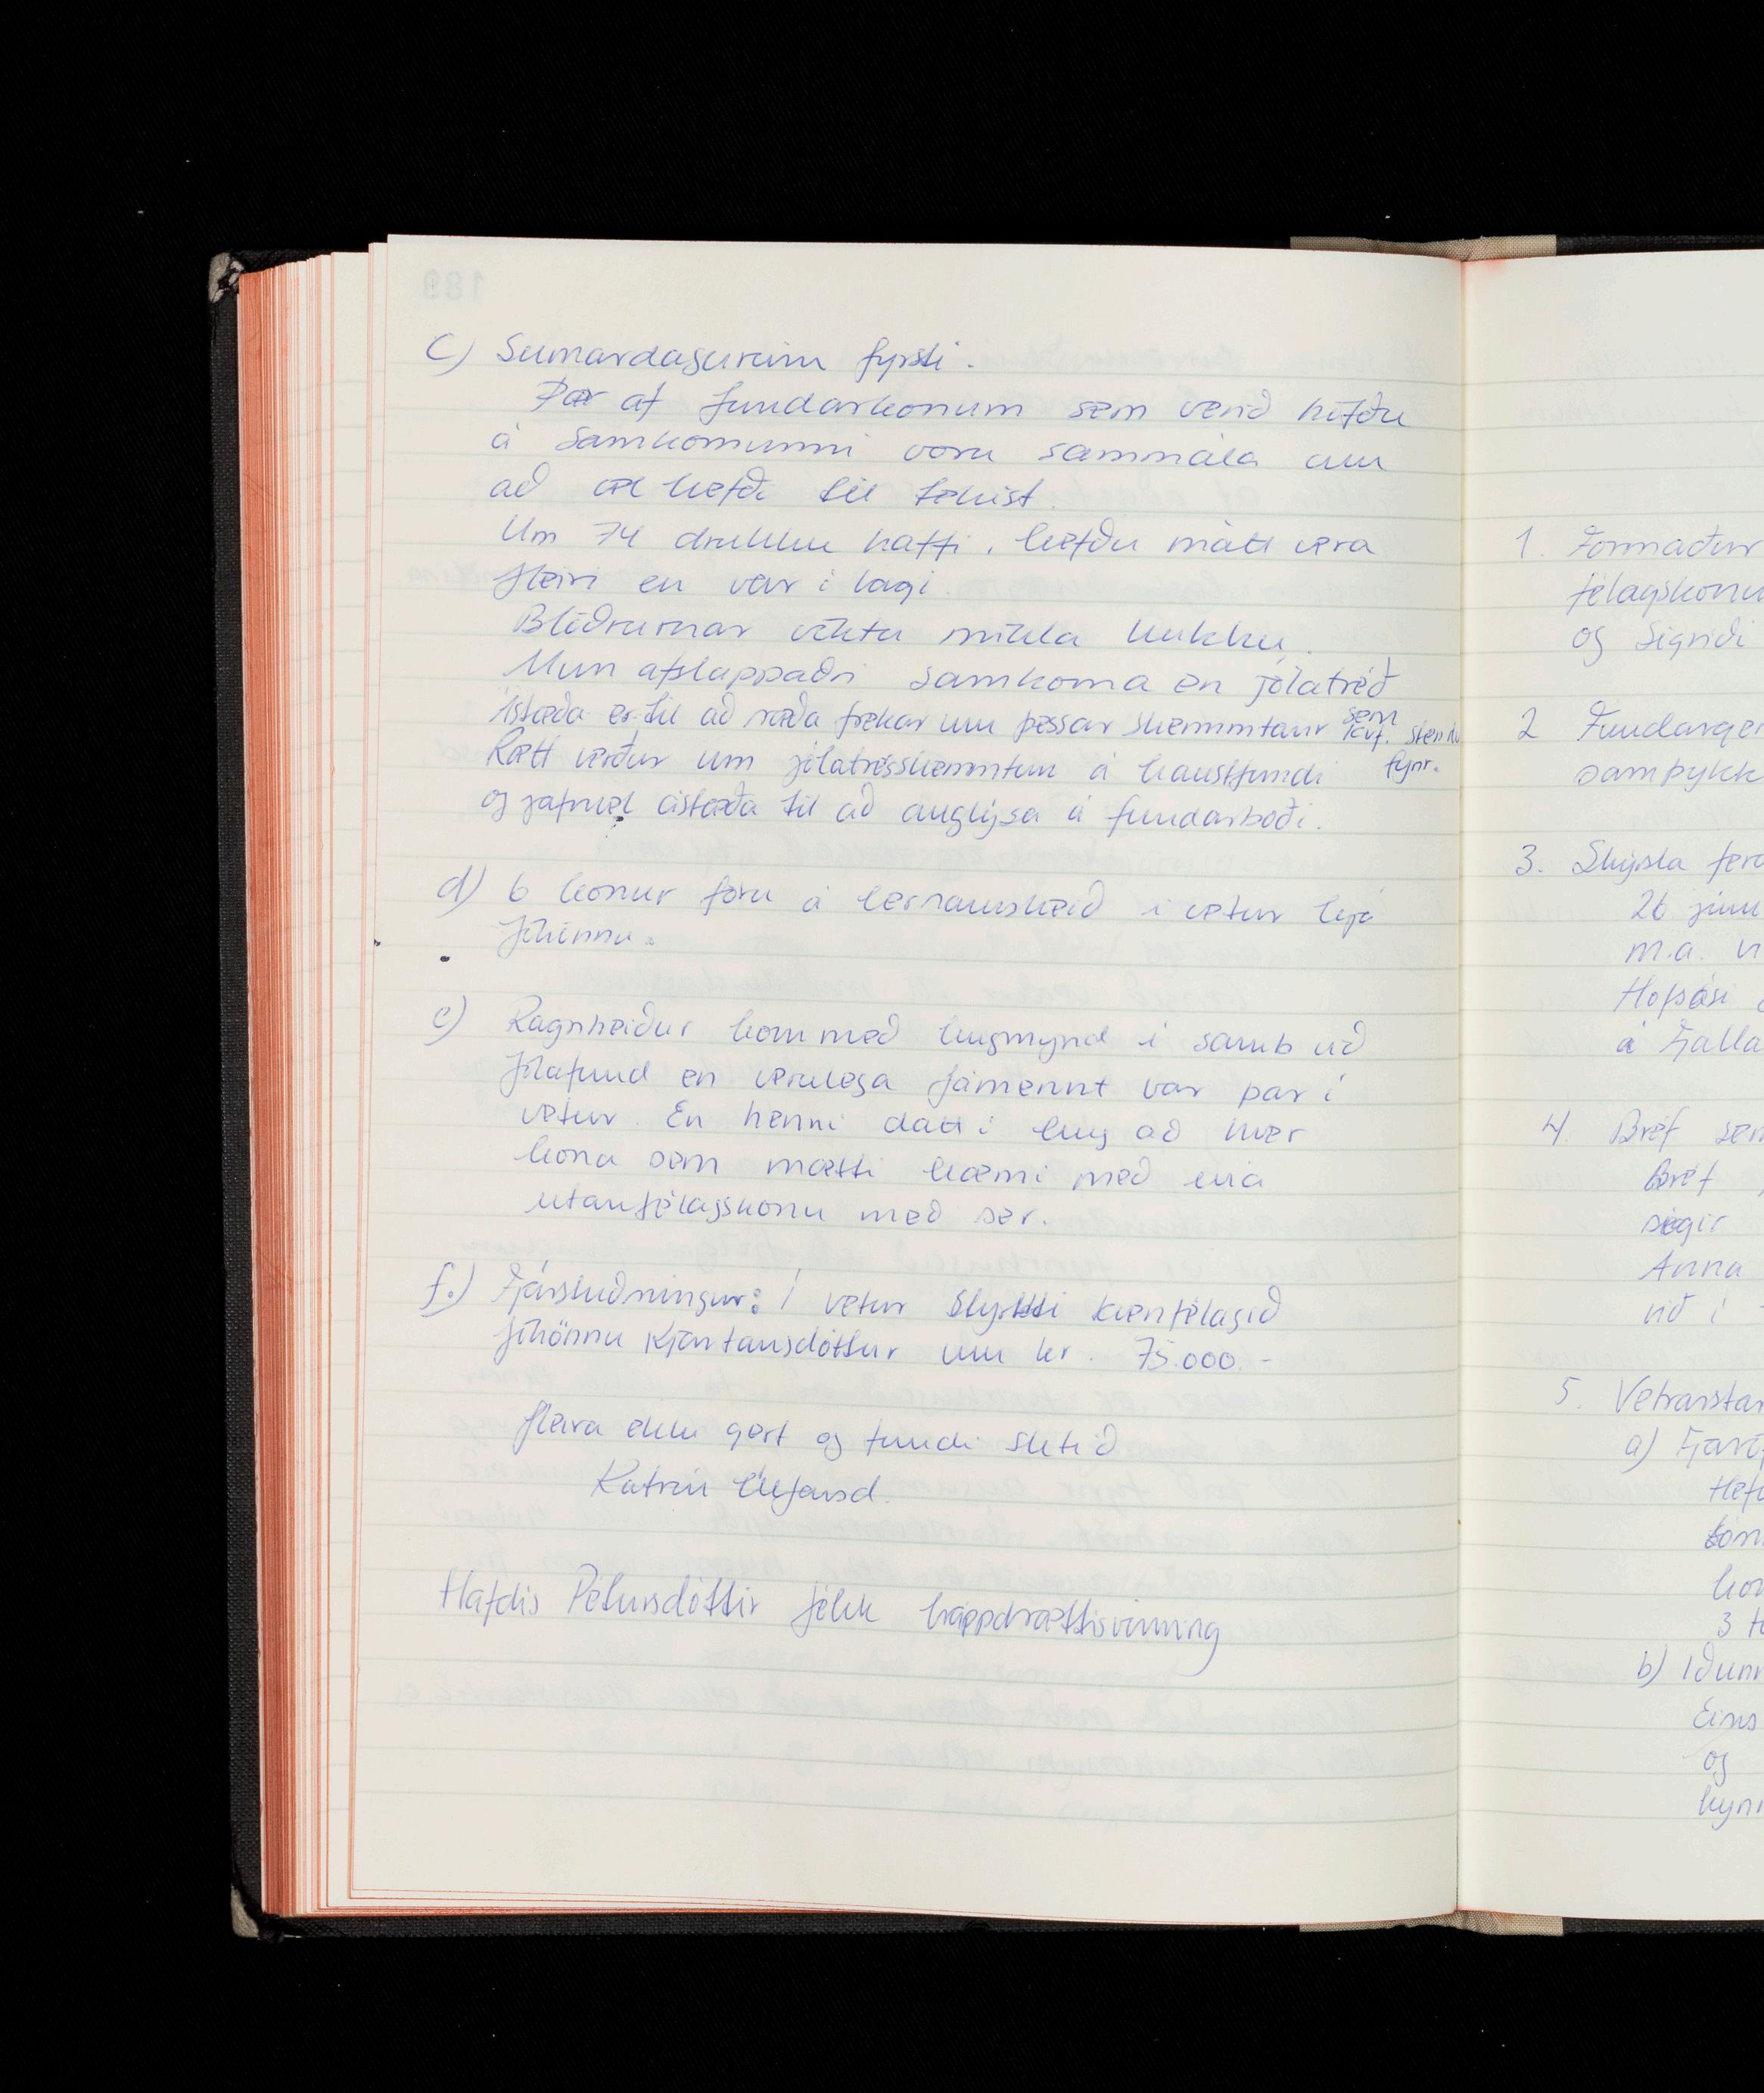 c) Sumardagurinn fyrsti.
Þær af fundarkonum sem verið höfðu
á samkomunni voru sammála um
að vel hefði til tekist.
Um 74 drukku kaffi, hefðu mátt vera
fleiri en var í lagi.
Blöðrurnar vöktu mikla lukku.
Mun afslappaðri samkoma en jólatréð
Ástæða er til að ræða frekar um þessar skemmtanir sem kvf. stendur fyrir.
Rætt verður um jólatrésskemmtun á haustfundi
og jafnvel ástæða til að auglýsa á fundarboði.
d) 6 konur fóru á leirnámskeið í vetur hjá
Jóhönnu.
e) Ragnheiður kom með hugmynd í samb við
Jólafund en verulega fámennt var þar í
vetur. En henni datt í hug að hver
kona sem mætti kæmi með eina
utanfélagskonu með ser.
f.) Fjárstuðningur: Í vetur styrkti kvenfélagið
Jóhönnu Kjartansdóttur um kr. 75.000.-
fleira ekki gert og fundi slitið
Katrín
Hafdís Pétursdóttir fékk happdrættisvinning
1. Formaður
félagskonu
og Sigríði
2 Fundarger
samþykk
3. Skýrsla ferð
26 júní
m.a. vi
Hofsósi
á Fjalla
4. Bréf sem
Bréf
segir
Anna
við í
5. Vetrarstar
a) Fjarö
Hefu
kom
3 t
b) Iðunn
Eins
og
kynn